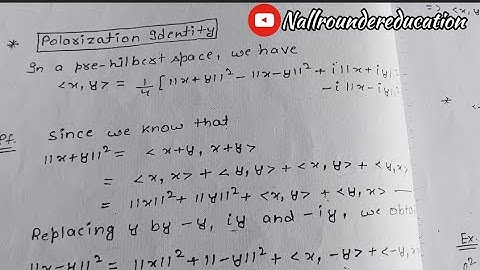 Nallroundereducation
* Polarization Identity
In a pre-hilbert space, we have
<x, y> = 1/4 [ ||x+y||² - ||x-y||² + i ||x+iy||²
- i ||x-iy||²
Pf. Since we know that
||x+y||² = <x+y, x+y>
= <x, x> + <y, y> + <x, y> + <y, x>
= ||x||² + ||y||² + <x, y> + <y, x> —
Replacing y by -y, iy and -iy, we obta
||x-y||² = ||x||² + ||-y||² + <x, -y> + <-y, x
Ex.